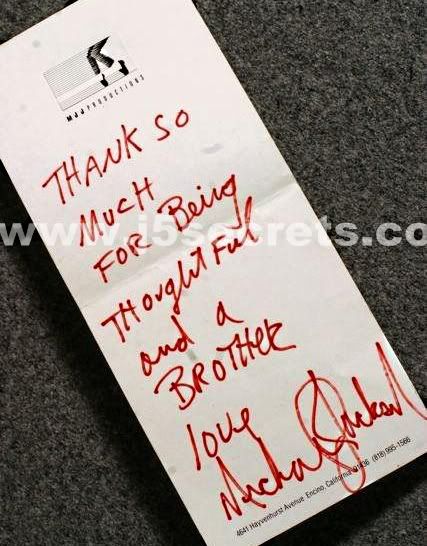 MJJ PRODUCTIONS
THANK SO
MUCH
FOR Being
THOughtFul
and a
BROTHER
love
Michael Jackson
4641 Hayvenhurst Avenue Encino, California 91436 (818) 995-1566
www.j5secrets.com